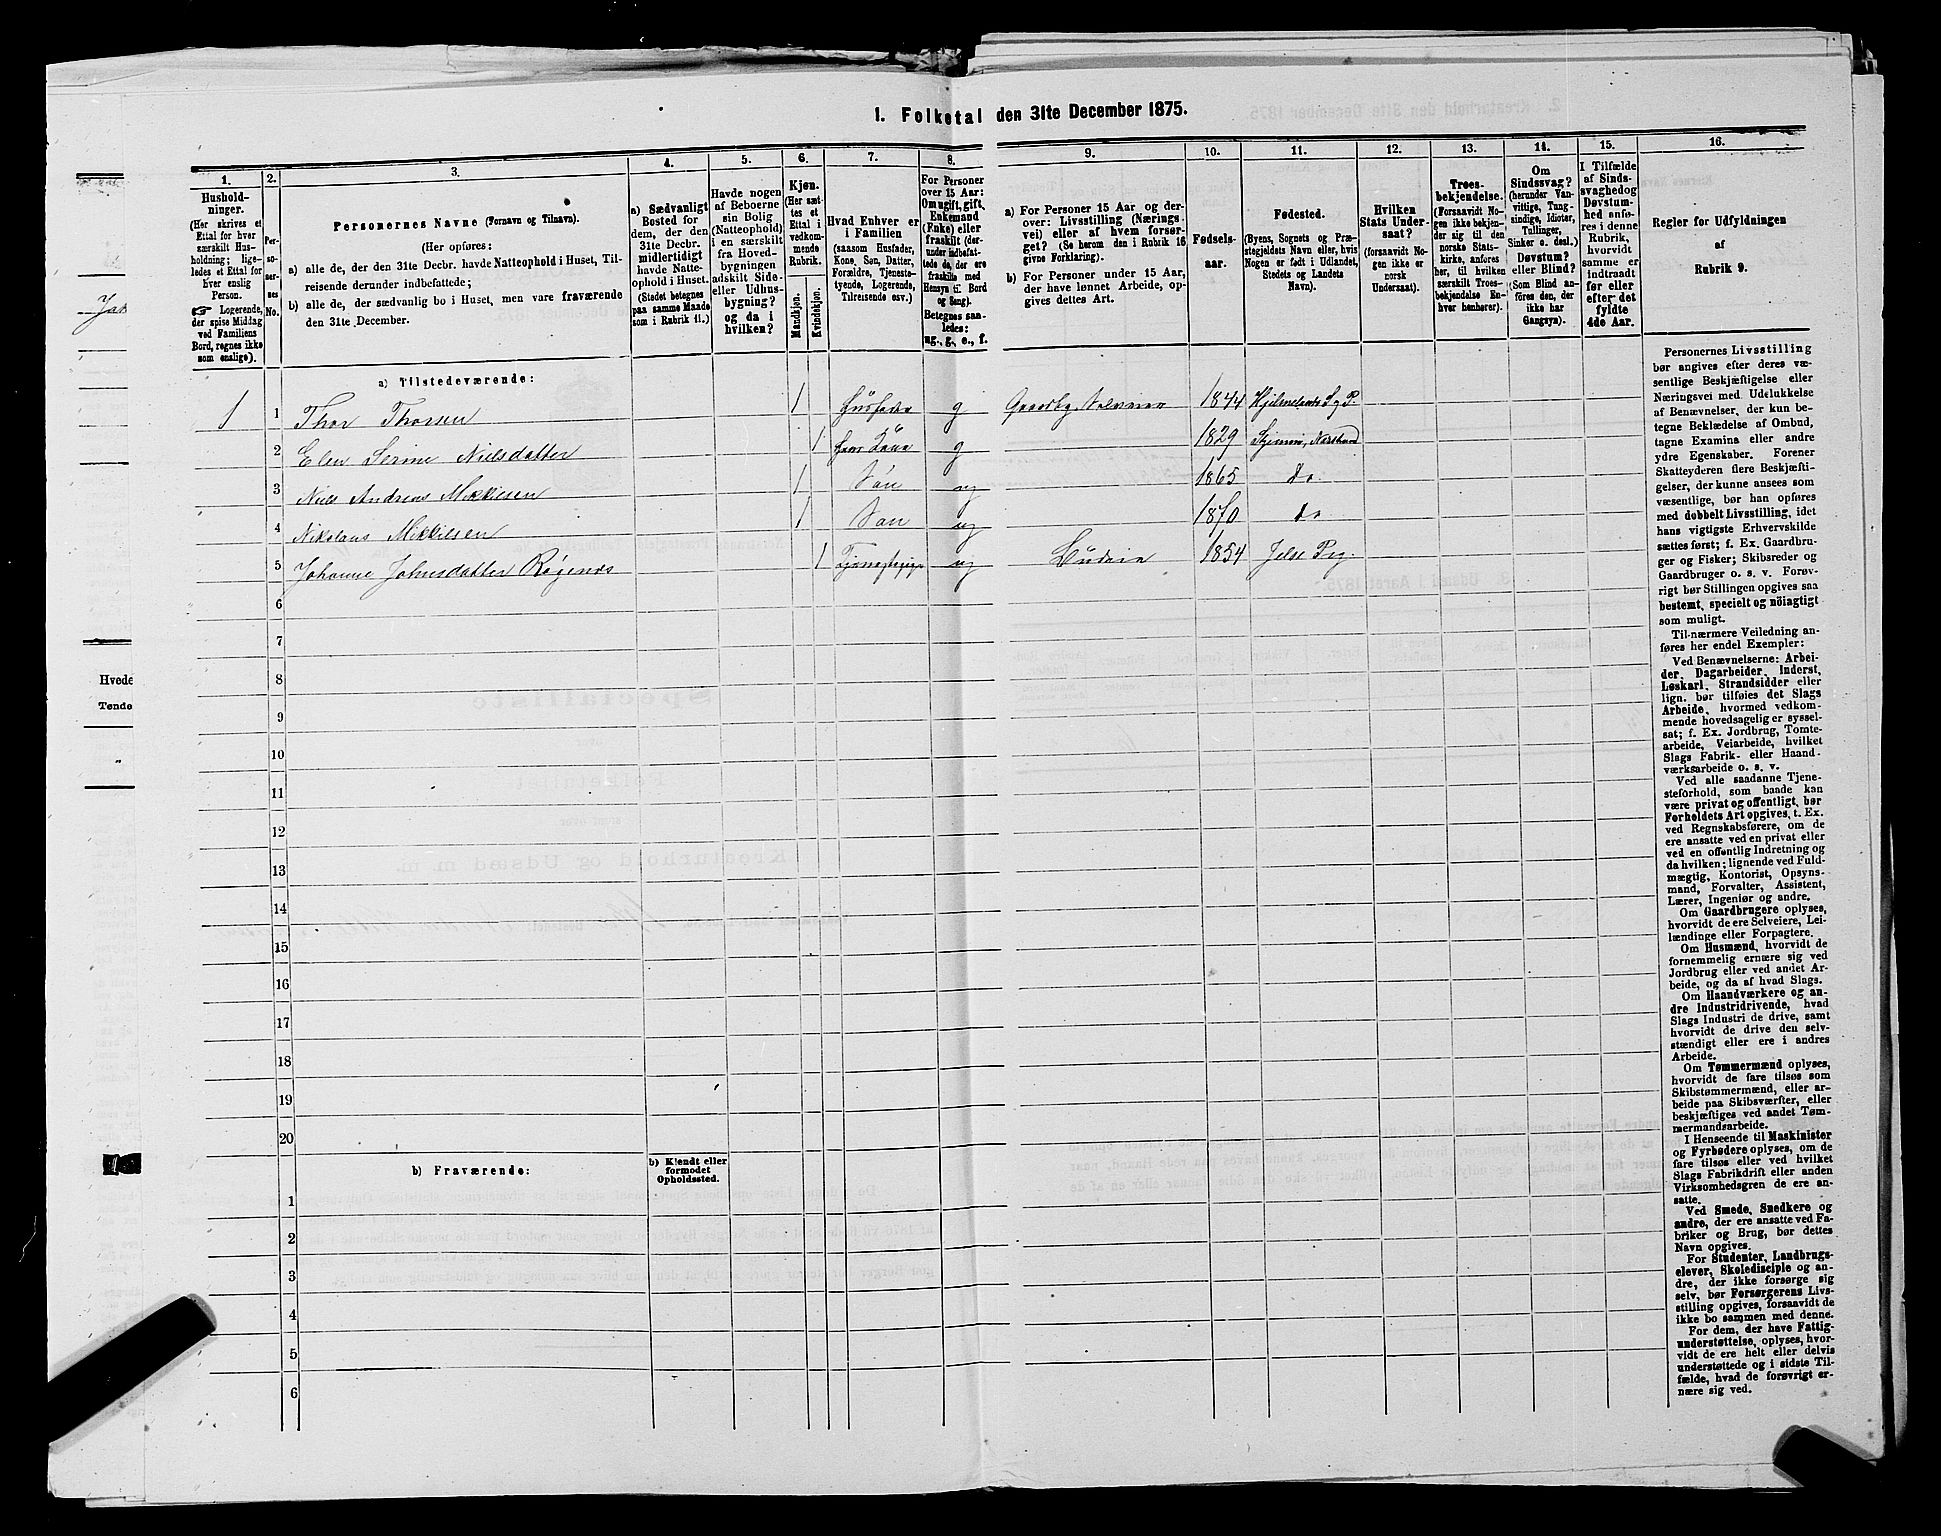 1. Folketal den 31te December 1875.
1.
2.
3.
4.
5.
6.
7.
8.
9.
10.
11.
12.
13.
14.
15.
16.
Hushold-
ninger.
(Her skrives et
Ettal for hver
særskilt Hus-
holdning; lige-
ledes et Ettal for
hver enslig
Person.
☞ Logerende,
der spise Middag
ved Familiens
Bord, regnes ikke
som enslige).
Per-
so-
ner-
nes
No.
Personernes Navne (Fornavn og Tilnavn).
(Her opføres:
a) alle de, der den 31te Decbr. havde Natteophold i Huset, Til-
reisende derunder indbefattede;
b) alle de, der sædvanlig bo i Huset, men vare fraværende
den 31te December.
a) Sædvanligt
Bosted for
dem, der den
31te Decbr.
midlertidigt
havde Natte-
ophold i Huset.
(Stedet betegnes
paa samme Maade
som i Rubrik 11.)
Havde nogen
af Beboerne
sin Bolig
(Natteophold)
i en særskilt
fra Hoved-
bygningen
adskilt Side-
eller Udhus-
bygning?
og da i
hvilken?
Kjøn.
(Her sæt-
tes et
Ettal i
vedkom-
mende
Rubrik.
Mandkjøn.
Kvindekjøn.
Hvad Enhver er
i Familien
(saasom Husfader,
Kone, Søn, Datter,
Forældre, Tjeneste-
tyende, Logerende,
Tilreisende osv.)
For Personer
over 15 Aar:
Om ugift, gift,
Enkemand
(Enke) eller
fraskilt (der-
under indbefat-
tede de, der ere
fraskilte med
Hensyn til Bord
og Seng).
Betegnes saa-
ledes:
ug., g., e., f.
a) For Personer 15 Aar og der-
over: Livsstilling (Nærings-
vei) eller af hvem forsør-
get? (Se herom den i Rubrik 16
givne Forklaring).
b) For Personer under 15 Aar,
der have lønnet Arbeide, op-
gives dettes Art.
Fødsels-
aar.
Fødested.
(Byens, Sognets og Præ-
stegjeldets Navn eller, hvis
Nogen er født i Udlandet,
Stedets og Landets
Navn).
Hvilken
Stats Under-
saat?
(forsaavidt No-
gen ikke er
norsk
Undersaat).
Troes-
bekjendelse.
(Forsaavidt No-
gen ikke bekjen-
der sig til den
norske Stats-
kirke, anføres
her, til hvilken
særskilt Troes-
bekjendelse En-
hver henhører).
Om
Sindssvag?
(herunder Van-
vittige, Tung-
sindige, Idioter,
Tullinger,
Sinker o. desl.)
Døvstum?
eller Blind?
(Som Blind an-
føres den, der
ikke har
Gangsyn).
I Tilfælde
af Sinds-
svaghed og
Døvstum-
hed anfø-
res i denne
Rubrik,
hvorvidt
samme er
indtraadt
før eller
efter det
fyldte
4de Aar.
Regler for Udfyldningen
af
Rubrik 9.
a) Tilstedeværende:
1 1 Thor Thorsen 1 Husfader g Gaardbr. Selveier 1844 Hjelmelands S. g P.
2 Elen Serine Nielsdatter 1 hans Kone g 1829
3 Niels Andreas Mikkelsen 1 Søn ug 1865 do.
4 Nikolaus Mikkelsen 1 Søn ug 1870 do
5 Johanne Johnsdatter 1 ug 1854 Jelse Prg.
6
7
8
9
10
11
12
13
14
15
16
17
18
19
20
b) Fraværende:
b) Kjendt eller
formodet
Opholdssted.
1
2
3
4
5
6
Personernes Livsstilling
bør angives efter deres væ-
sentlige Beskjæftigelse eller
Næringsvei med Udelukkelse
af Benævnelser, der kun be-
tegne Beklædelse af Ombud,
tagne Examina eller andre
ydre Egenskaber. Forener
Skatteyderen flere Beskjæfti-
gelser, der kunne ansees som
væsentlige, bør han opføres
med dobbelt Livsstilling, idet
hans vigtigste Erhvervskilde
sættes først; f. Ex. Gaardbru-
ger og Fisker; Skibsreder og
Gaardbruger o. s. v. Forøv-
rigt bør Stillingen opgives saa
bestemt, specielt og nöiagtigt
som muligt.
Til nærmere Veiledning an-
føres her endel Exempler:
Ved Benævnelserne: Arbei-
der, Dagarbeider, Inderst,
Løskarl, Strandsidder eller
lign. bør tilføies det Slags
Arbeide, hvormed vedkom-
mende hovedsagelig er syssel-
sat; f. Ex. Jordbrug, Tomte-
arbeide, Veiarbeide, hvilket
Slags Fabrik- eller Haand-
værksarbeide o. s. v.
Ved alle saadanne Tjene-
steforhold, som baade kan
være privat og offentligt, bør
Forholdets Art opgives, t. Ex.
ved Regnskabsførere, om de
ere ansatte ved en privat eller
ved en offentlig Indretning og
da hvilken; lignende ved Fuld-
mægtig, Kontorist, Opsyns-
mand, Forvalter, Assistent,
Lærer, Ingeniør og andre.
Om Gaardbrugere oplyses,
hvorvidt de ere Selveiere, Lei-
lændinge eller Forpagtere.
Om Husmænd, hvorvidt de
fornemmelig ernære sig ved
Jordbrug eller ved andet Ar-
beide, og da af hvad Slags.
Om Haandværkere og an-
dre Industridrivende, hvad
Slags Industri de drive, samt
hvorvidt de drive den selv-
stændigt eller ere i andres
Arbeide.
Om Tømmermænd oplyses,
hvorvidt de fare tilsøs som
Skibstømmermænd, eller ar-
beide paa Skibsværfter, eller
beskjæftiges ved andet Tøm-
mermandsarbeide.
I Henseende til Maskinister
og Fyrbødere oplyses, om de
fare tilsøs eller ved hvilket
Slags Fabrikdrift eller anden
Virksomhedsgren de ere an-
satte.
Ved Smede, Snedkere og
andre, der ere ansatte ved Fa-
briker og Brug, bør dettes
Navn opgives.
For Studenter, Landbrugs-
elever, Skoledisciple og an-
dre, der ikke forsørge sig
selv, bør Forsørgerens Livs-
stilling opgives, forsaavidt de
ikke bo sammen med denne.
For dem, der have Fattig-
understøttelse, oplyses, hvor-
vidt de ere helt eller delvis
understøttede og i sidste Til-
fælde, hvad de forøvrigt er-
nære sig ved.
Hvede
Tønde